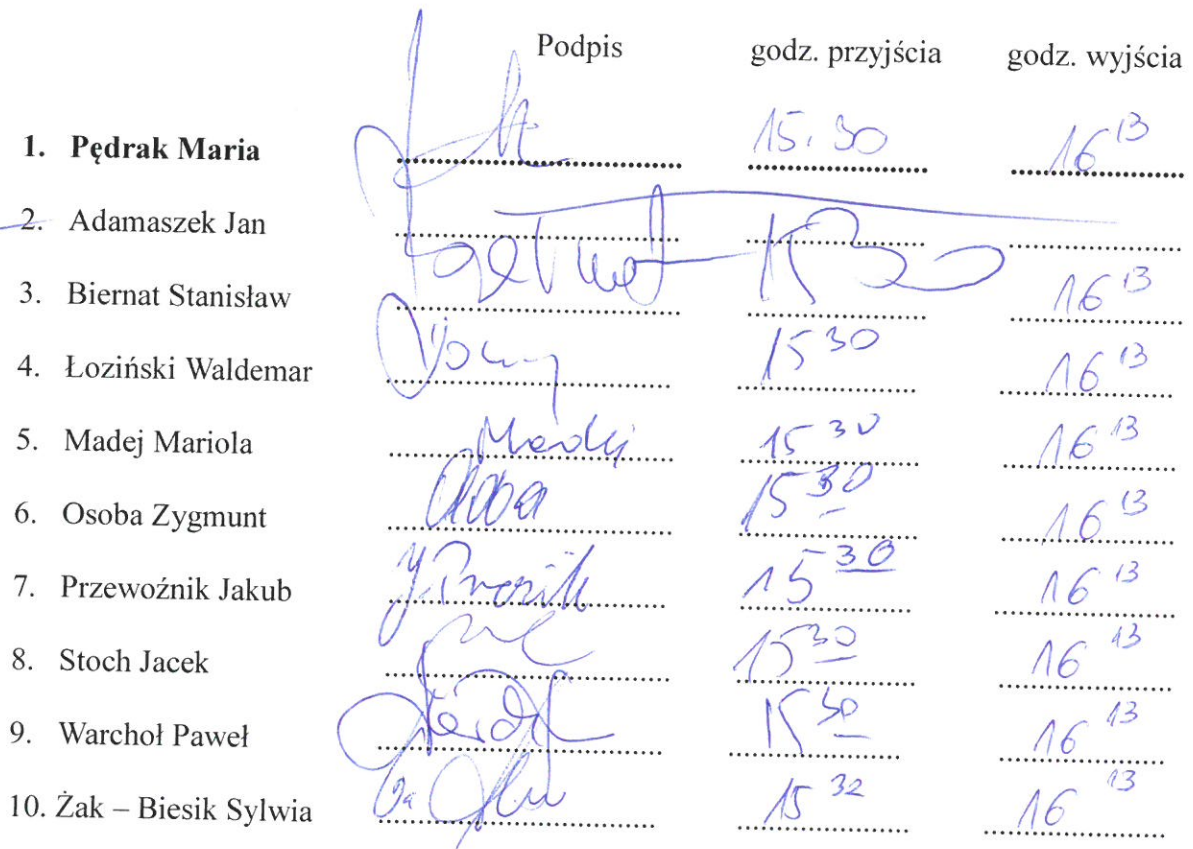 Podpis godz. przyjścia godz. wyjścia
1. Pędrak Maria 15.30 16 13
2. Adamaszek Jan
3. Biernat Stanisław 15 30 16 13
4. Łoziński Waldemar 15 30 16 13
5. Madej Mariola Madej 15 30 16 13
6. Osoba Zygmunt Osoba 15 30 16 13
7. Przewoźnik Jakub 15 30 16 13
8. Stoch Jacek 15 30 16 13
9. Warchoł Paweł 15 30 16 13
10. Żak – Biesik Sylwia 15 32 16 13